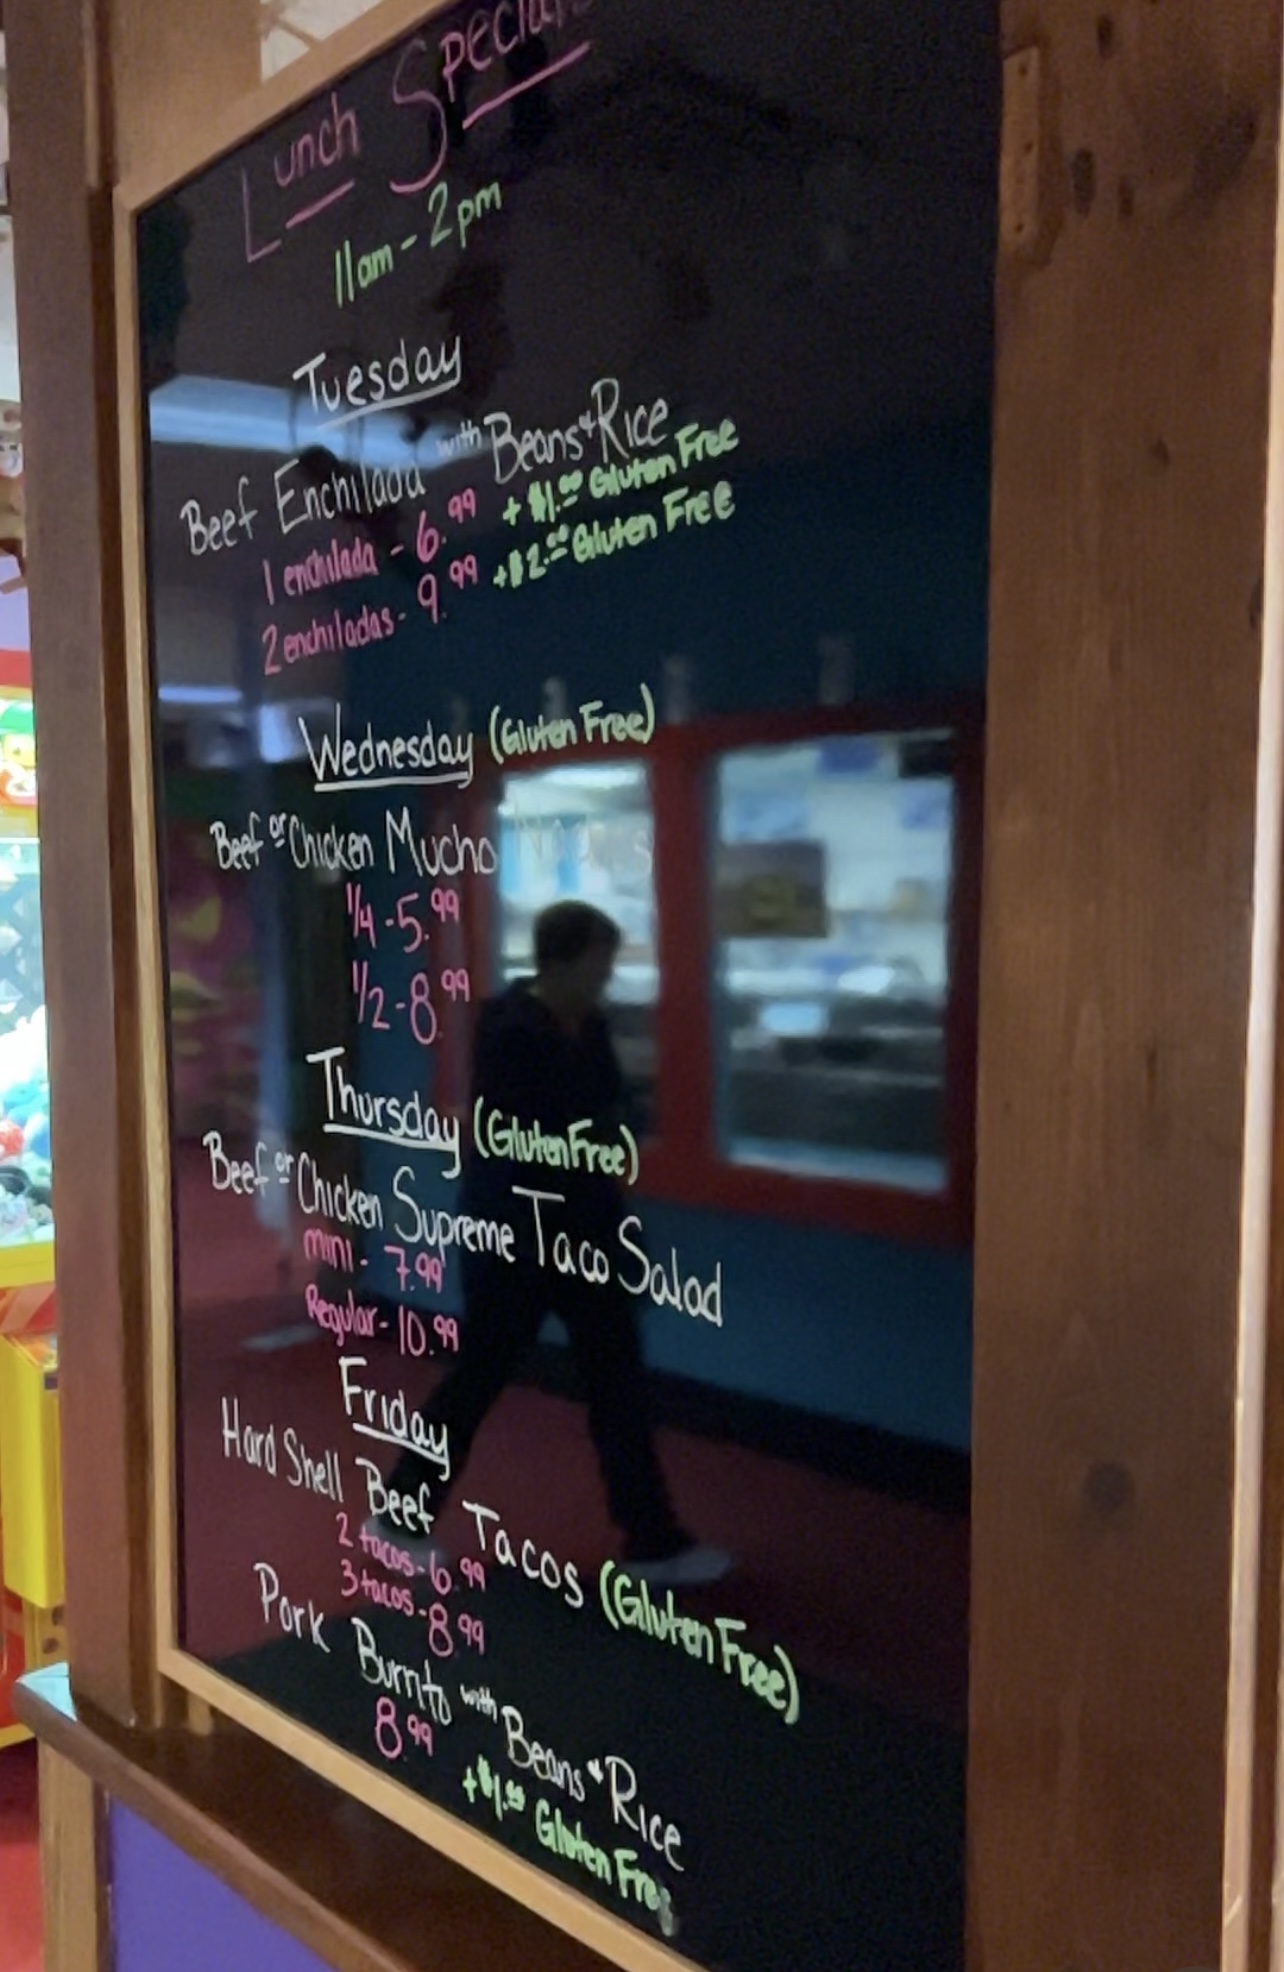 Lunch Specials
11am - 2pm
Tuesday
Beef Enchilada with Beans & Rice
1 enchilada - 6.99 + $1.00 Gluten Free
2 enchiladas - 9.99 + $2.00 Gluten Free
Wednesday (Gluten Free)
Beef or Chicken Mucho Nachos
1/4 - 5.99
1/2 - 8.99
Thursday (Gluten Free)
Beef or Chicken Supreme Taco Salad
mini - 7.99
Regular - 10.99
Friday
Hard Shell Beef Tacos (Gluten Free)
2 tacos - 6.99
3 tacos - 8.99
Pork Burrito with Beans & Rice
8.99
+ $1.00 Gluten Free